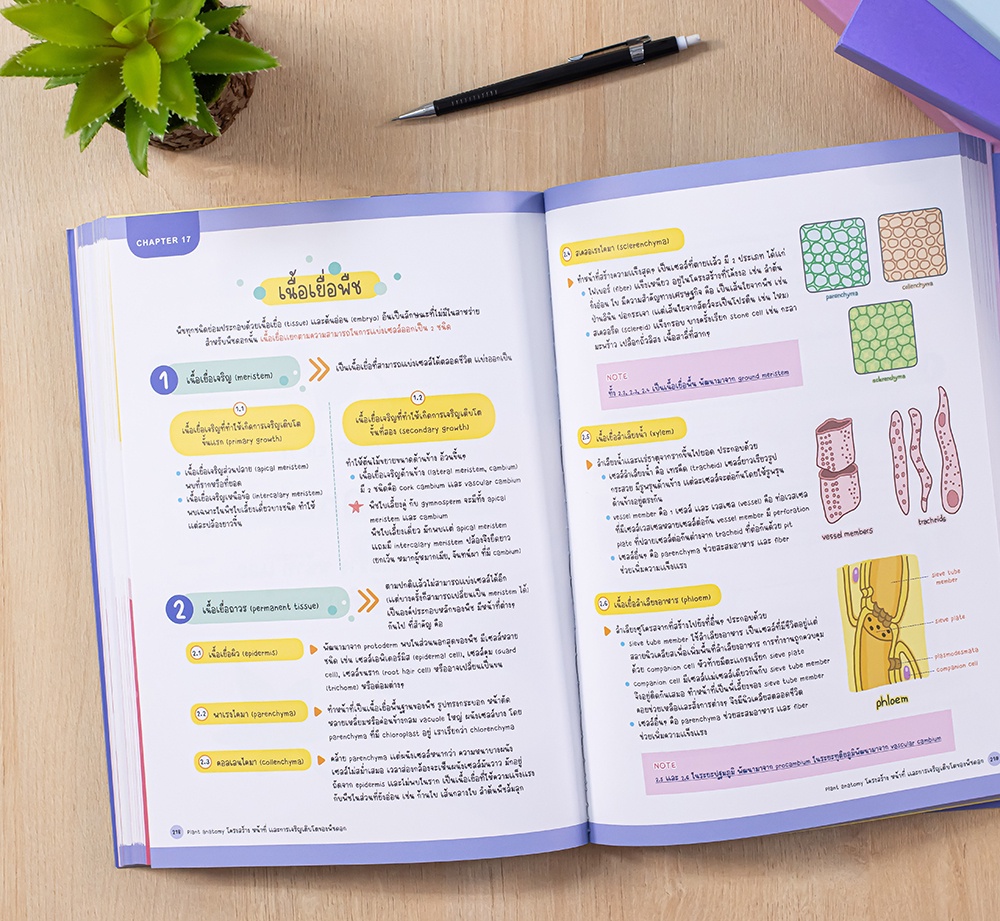 CHAPTER 17
เนื้อเยื่อพืช
พืชทุกชนิดย่อมประกอบด้วยเนื้อเยื่อ (tissue) และต้นอ่อน (embryo) อันเป็นลักษณะที่ไม่มีในสาหร่าย
สำหรับพืชดอกนั้น เนื้อเยื่อแยกตามความสามารถในการแบ่งเซลล์ออกเป็น 2 ชนิด
1 เนื้อเยื่อเจริญ (meristem)
เป็นเนื้อเยื่อที่สามารถแบ่งเซลล์ได้ตลอดชีวิต แบ่งออกเป็น
1.1
เนื้อเยื่อเจริญที่ทำให้เกิดการเจริญเติบโต
ขั้นแรก (primary growth)
เนื้อเยื่อเจริญส่วนปลาย (apical meristem)
พบที่รากหรือที่ยอด
เนื้อเยื่อเจริญเหนือข้อ (intercalary meristem)
พบเฉพาะในพืชใบเลี้ยงเดี่ยวบางชนิด ทำให้
แต่ละปล้องยาวขึ้น
1.2
เนื้อเยื่อเจริญที่ทำให้เกิดการเจริญเติบโต
ขั้นที่สอง (secondary growth)
ทำให้ต้นไม้ขยายขนาดด้านข้าง อ้วนขึ้นๆ
เนื้อเยื่อเจริญด้านข้าง (lateral meristem, cambium)
มี 2 ชนิดคือ cork cambium และ vascular cambium
พืชใบเลี้ยงคู่ กับ gymnosperm จะมีทั้ง apical
meristem และ cambium
พืชใบเลี้ยงเดี่ยว มักพบแต่ apical meristem
แถมมี intercalary meristem ปล้องจึงยืดยาว
(ยกเว้น หมากผู้หมากเมีย, จันทน์ผา ที่มี cambium)
2 เนื้อเยื่อถาวร (permanent tissue)
ตามปกติแล้วไม่สามารถแบ่งเซลล์ได้อีก
(แต่บางครั้งก็สามารถเปลี่ยนเป็น meristem ได้)
เป็นองค์ประกอบหลักของพืช มีหน้าที่ต่างๆ
กันไป ที่สำคัญ คือ
2.1 เนื้อเยื่อผิว (epidermis)
พัฒนามาจาก protoderm พบในส่วนนอกสุดของพืช มีเซลล์หลาย
ชนิด เช่น เซลล์เอพิเดอร์มิส (epidermal cell), เซลล์คุม (guard
cell), เซลล์ขนราก (root hair cell) หรืออาจเปลี่ยนเป็นขน
(trichome) หรือต่อมต่างๆ
2.2 พาเรงไคมา (parenchyma)
ทำหน้าที่เป็นเนื้อเยื่อพื้นฐานของพืช รูปทรงกระบอก หน้าตัด
หลายเหลี่ยมหรือค่อนข้างกลม vacuole ใหญ่ ผนังเซลล์บาง โดย
parenchyma ที่มี chloroplast อยู่ เราเรียกว่า chlorenchyma
2.3 คอลเลนไคมา (collenchyma)
คล้าย parenchyma แต่ผนังเซลล์หนากว่า ความหนาบางผนัง
เซลล์ไม่สม่ำเสมอ เวลาส่องกล้องจะเห็นผนังเซลล์มันวาว มักอยู่
ถัดจาก epidermis และไม่พบในราก เป็นเนื้อเยื่อที่ให้ความแข็งแรง
กับพืชในส่วนที่ยังอ่อน เช่น ก้านใบ เส้นกลางใบ ลำต้นพืชล้มลุก
218 Plant anatomy โครงสร้าง หน้าที่ และการเจริญเติบโตของพืชดอก
2.4 สเคลอเรงไคมา (sclerenchyma)
ทำหน้าที่สร้างความแข็งสุดๆ เป็นเซลล์ที่ตายแล้ว มี 2 ประเภท ได้แก่
ไฟเบอร์ (fiber) แข็งเหนียว อยู่ในโครงสร้างที่โค้งงอ เช่น ลำต้น
กิ่งอ่อน ใบ มีความสำคัญทางเศรษฐกิจ คือ เป็นเส้นใยจากพืช เช่น
ป่านลินิน ปอกระเจา (แต่เส้นใยจากสัตว์จะเป็นโปรตีน เช่น ไหม)
สเคลอรีด (sclereid) แข็งกรอบ บางครั้งเรียก stone cell เช่น กะลา
มะพร้าว เปลือกถั่วลิสง เนื้อสาลี่ที่สากๆ
parenchyma
collenchyma
sclerenchyma
NOTE
ทั้ง 2.2, 2.3, 2.4 เป็นเนื้อเยื่อพื้น พัฒนามาจาก ground meristem
2.5 เนื้อเยื่อลำเลียงน้ำ (xylem)
ลำเลียงน้ำและแร่ธาตุจากรากขึ้นไปยอด ประกอบด้วย
เซลล์ลำเลียงน้ำ คือ เทรคีด (tracheid) เซลล์ยาวเรียวรูป
กระสวย มีรูพรุนด้านข้าง แต่ละเซลล์จะต่อกันโดยให้รูพรุน
ด้านข้างอยู่ตรงกัน
vessel member คือ 1 เซลล์ และ เวสเซล (vessel) คือ ท่อเวสเซล
ที่มีเซลล์เวสเซลหลายเซลล์ต่อกัน vessel member มี perforation
plate ที่ปลายเซลล์ต่อกันต่างจาก tracheid ที่ต่อกันด้วย pit
เซลล์อื่นๆ คือ parenchyma ช่วยสะสมอาหาร และ fiber
ช่วยเพิ่มความแข็งแรง
vessel members
tracheids
2.6 เนื้อเยื่อลำเลียงอาหาร (phloem)
ลำเลียงซูโครสจากที่สร้างไปยังที่อื่นๆ ประกอบด้วย
sieve tube member ใช้ลำเลียงอาหาร เป็นเซลล์ที่มีชีวิตอยู่แต่
สลายนิวเคลียสเพื่อเพิ่มพื้นที่ลำเลียงอาหาร การทำงานถูกควบคุม
ด้วย companion cell หัวท้ายมีตะแกรงเรียก sieve plate
companion cell มีเซลล์แม่เซลล์เดียวกันกับ sieve tube member
จึงอยู่ติดกันเสมอ ทำหน้าที่เป็นพี่เลี้ยงของ sieve tube member
คอยช่วยเหลือและสั่งการต่างๆ จึงมีนิวเคลียสตลอดชีวิต
เซลล์อื่นๆ คือ parenchyma ช่วยสะสมอาหาร และ fiber
ช่วยเพิ่มความแข็งแรง
sieve tube
member
sieve plate
plasmodesmata
companion cell
phloem
NOTE
2.5 และ 2.6 ในระยะปฐมภูมิ พัฒนามาจาก procambium ในระยะทุติยภูมิพัฒนามาจาก vascular cambium
Plant anatomy โครงสร้าง หน้าที่ และการเจริญเติบโตของพืชดอก 219